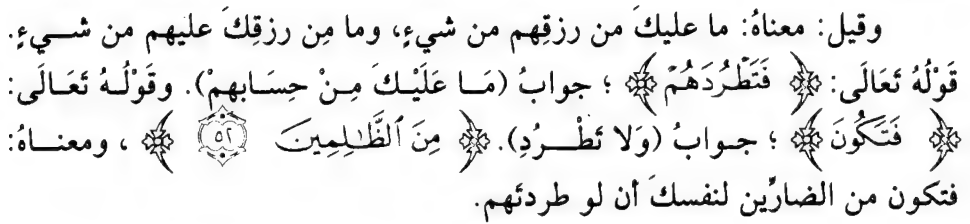 وقيل: معناهُ: ما عليكَ من رزقِهم من شيءٍ، وما مِن رزقِكَ عليهم من شــيءٍ.
قَوْلُهُ تَعَالَى: ﴿ فَتَطْرُدَهُمْ ﴾ ؛ جوابُ (مَــا عَلَيْـكَ مِـنْ حِسَـابِهِمْ). وقَوْلُـهُ تَعَـالَى:
﴿ فَتَكُونَ ﴾ ؛ جـوابُ (وَلا تَطْــرُدِ). ﴿ مِنَ ٱلظَّٰلِمِينَ ٥٢ ﴾ ، ومعنــاهُ:
فتكون من الضارِّين لنفسكَ أن لو طردتَهم.